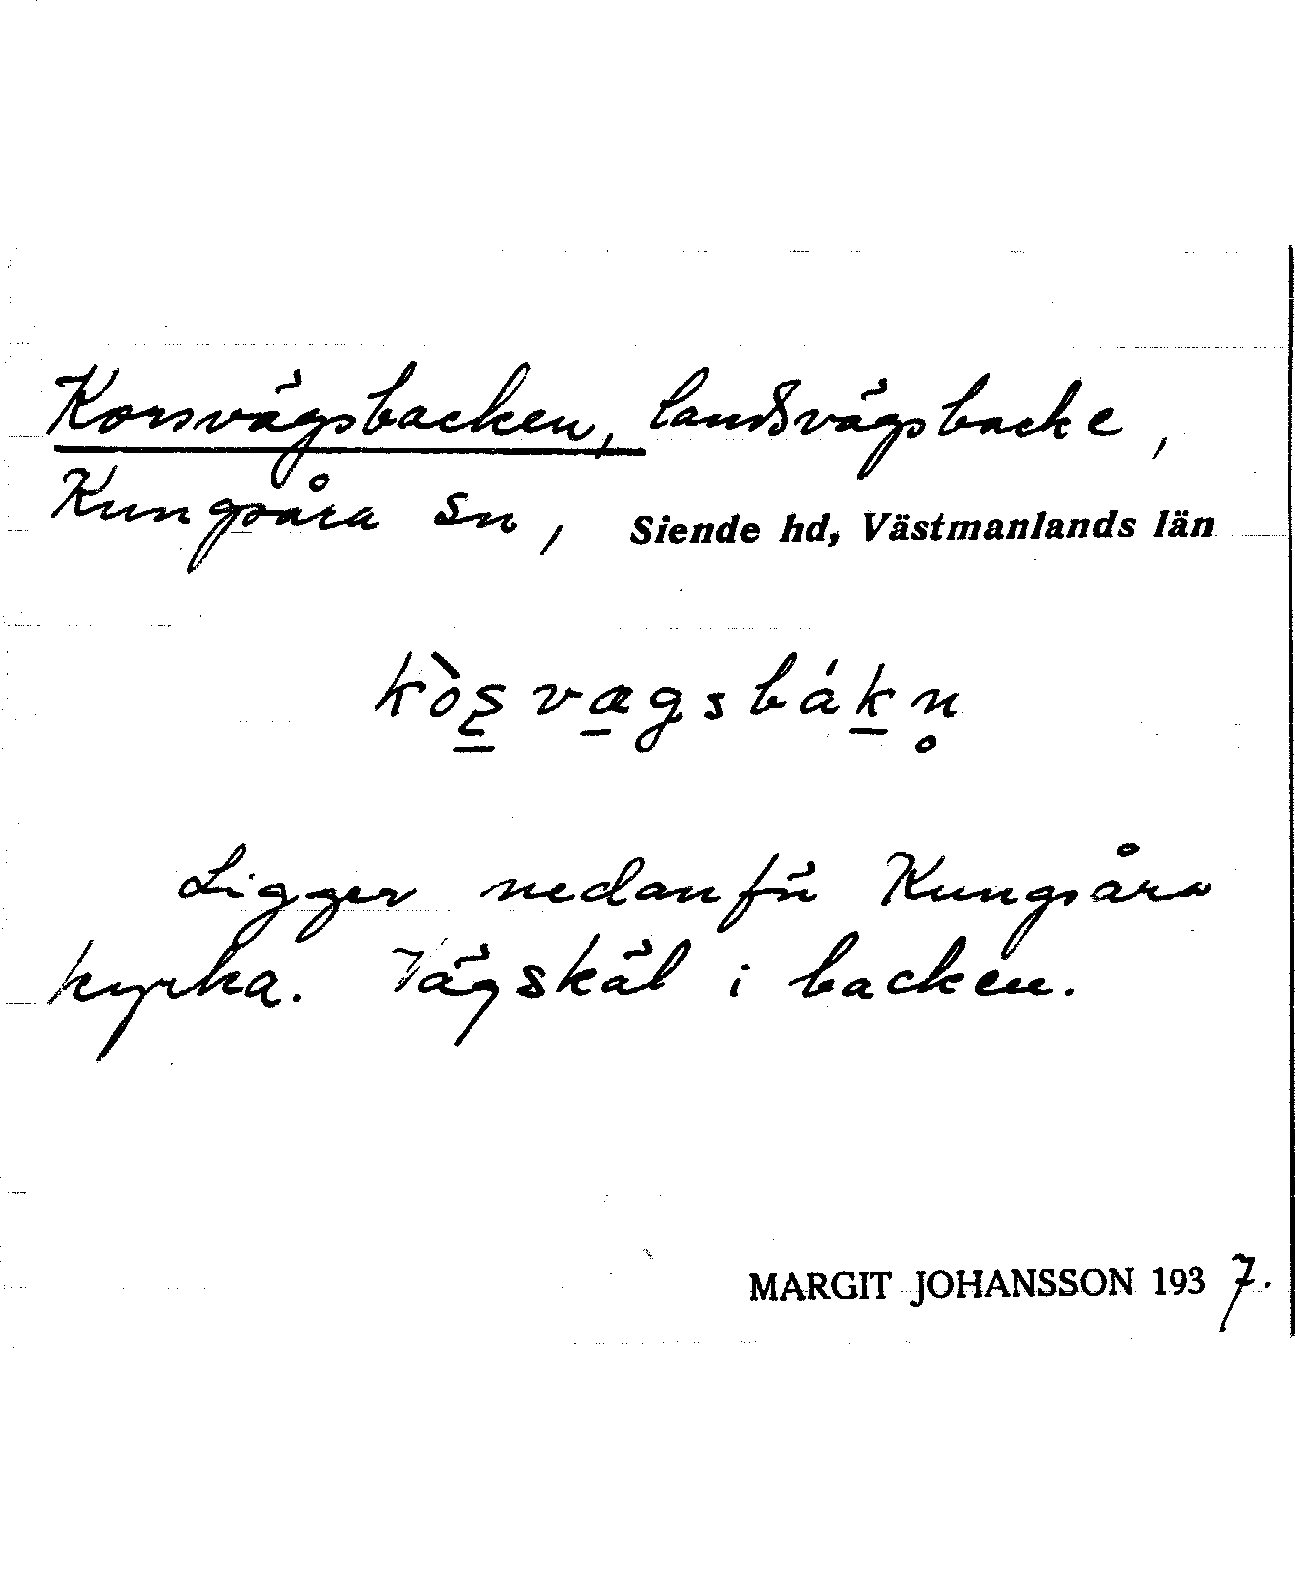 Korsvägsbacken, landsvägsbacke,
Kungsåra sn, Siende hd, Västmanlands län
kòs̠vægsbákn̥
Ligger nedanför Kungsåra
kyrka. Vägskäl i backen.
MARGIT JOHANSSON 1937.